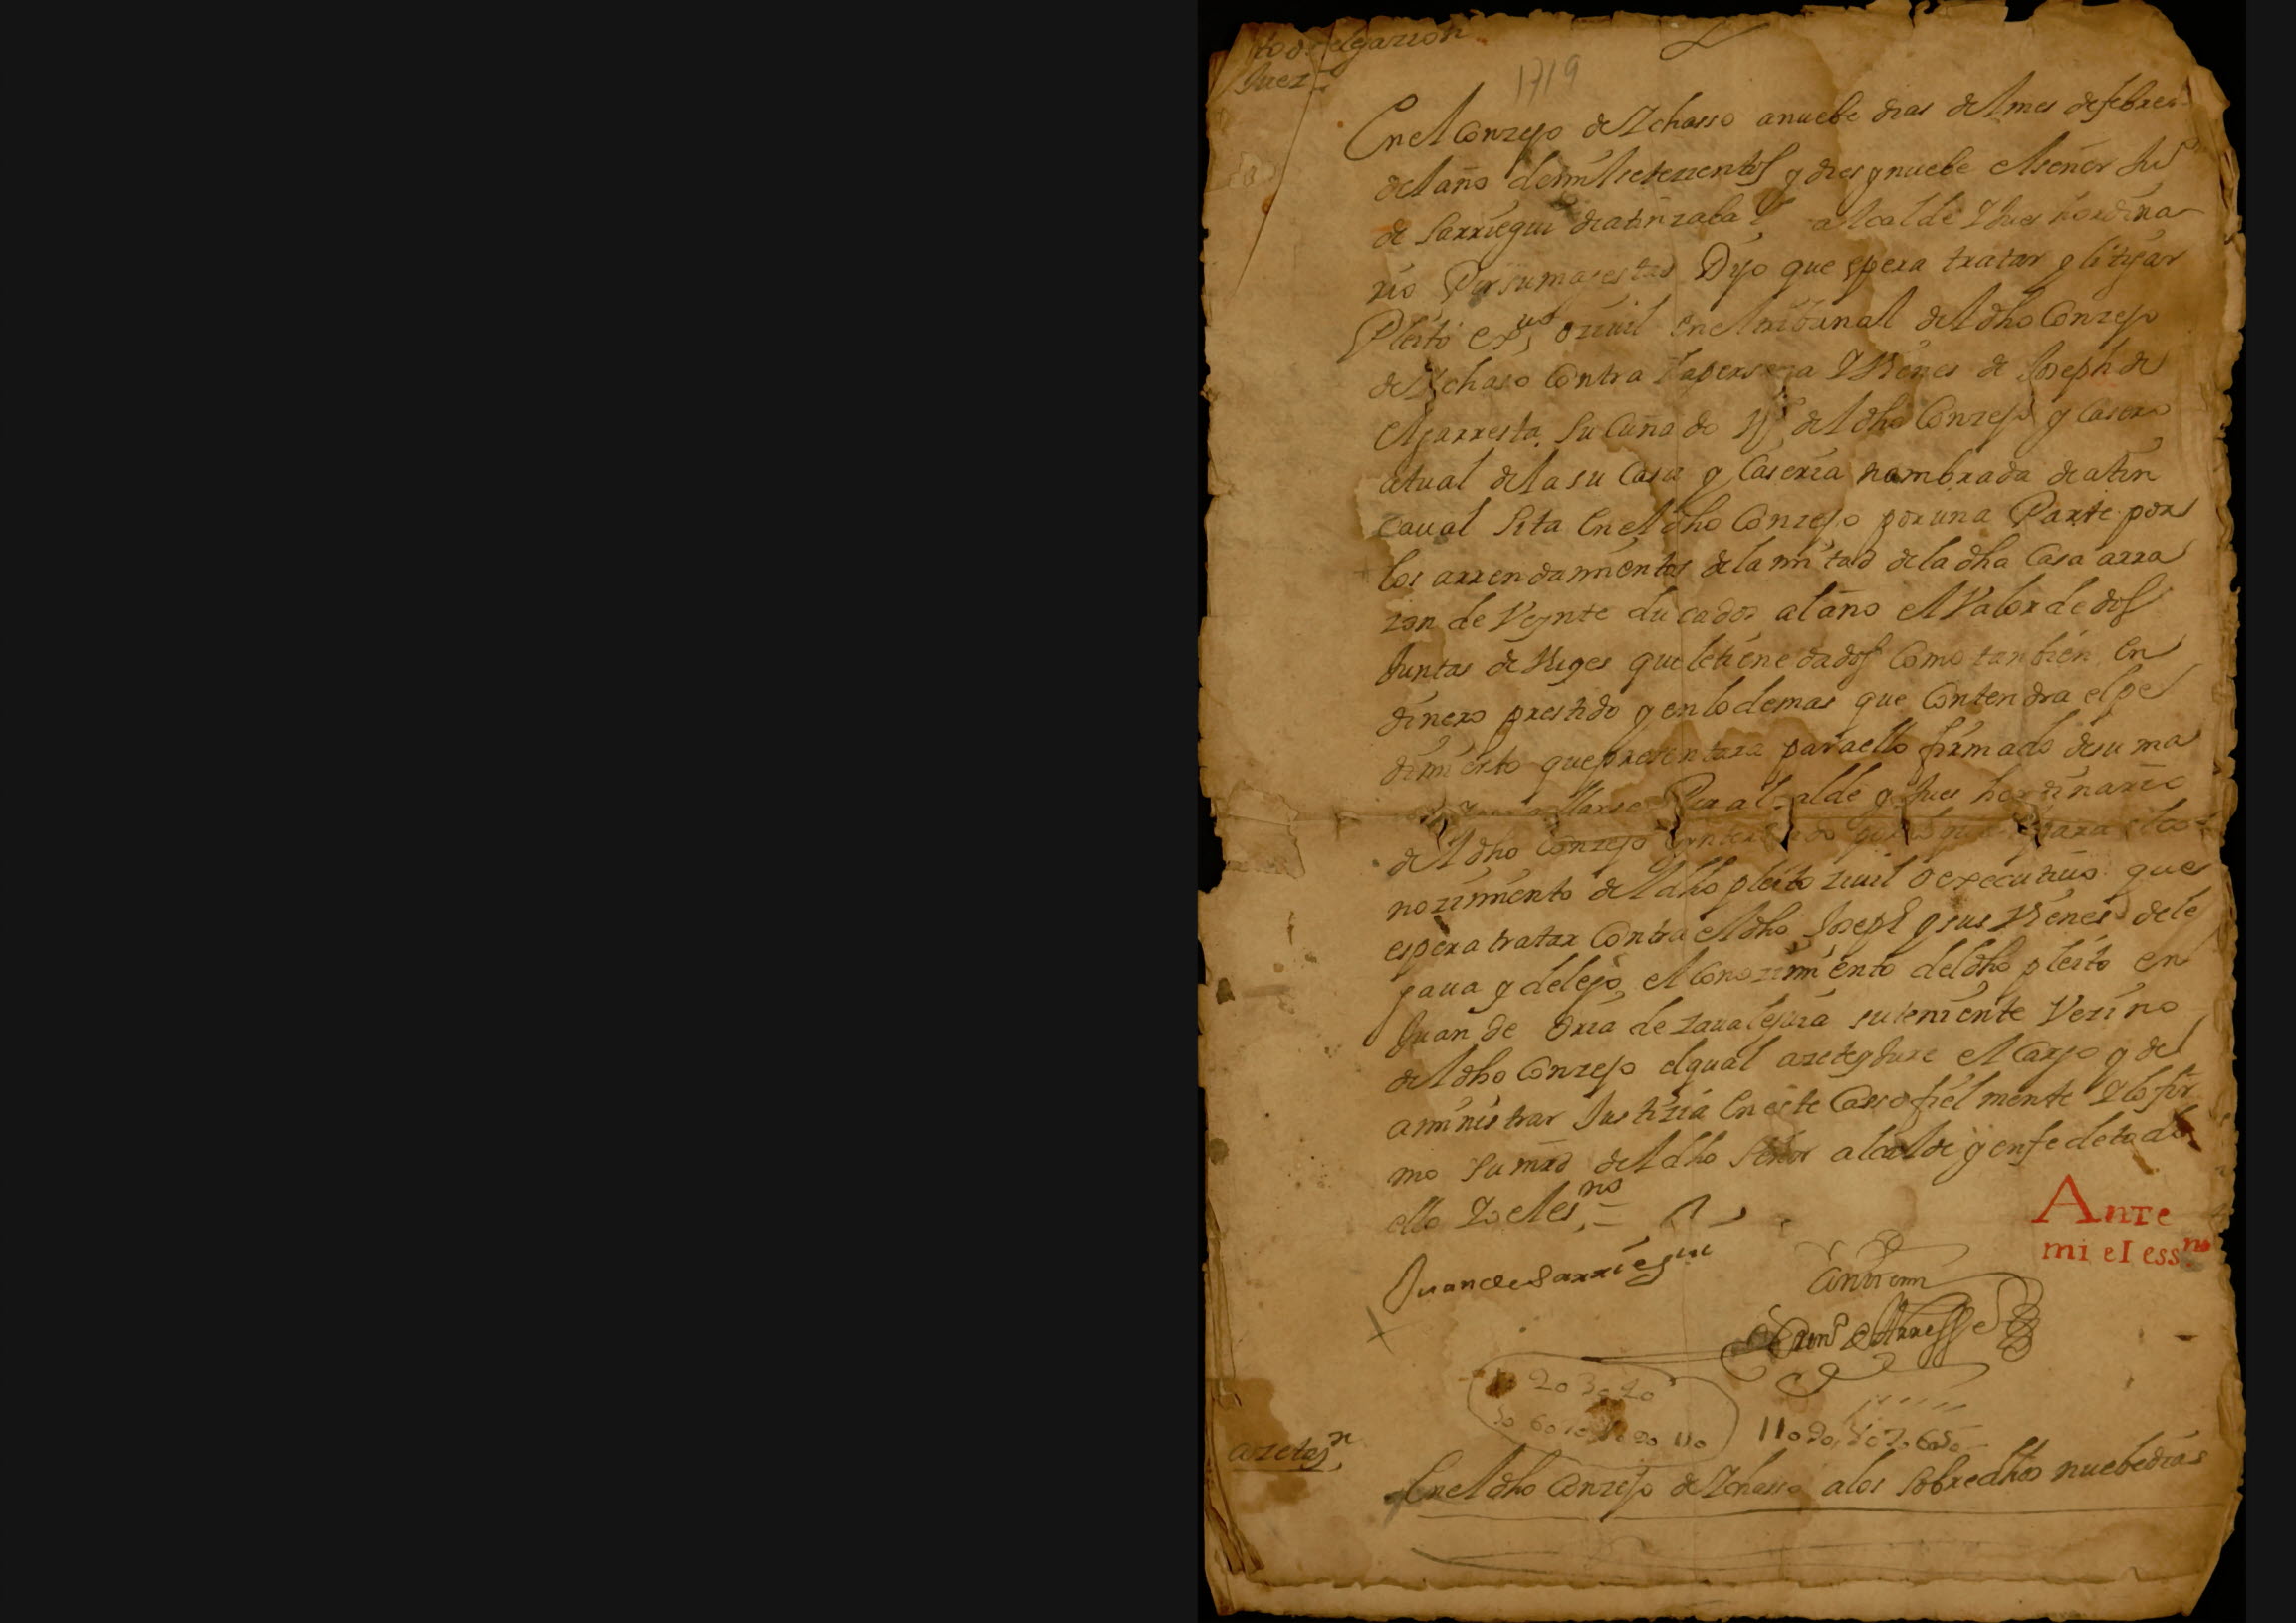 to de elegazion
Juez
1719
En el Conzejo de Ychasso a nuebe dias del mes de febrero
del año de mil setezentos y dies y nuebe el señor Juº
de Sarriegui de atinzabal alcalde y Jues hordina
rio Por su majestad Dijo que espera tratar y litigar
Pleito exᵘᵒ o ziuil en el tribunal del dho Conzejo
de Ychaso Contra la persona y Vienes de Joseph de
Elgarresta su Cuñado Vº del dho Conzejo y Casero
atual de la su Casa y Caseria nombrada de atin
caual sita en el dho Conzejo por una Parte por
los arrendamientos de la mitad de la dha Casa a rra
zon de Veynte ducados al año el Valor de dos
Juntas de Vueyes que le tiene dados Como tanbien en
dinero prestado y en lo demas que Contendra el pe
dimiento que presentara para ello firmado de su ma
allarse Por alcalde y Jues hordinario
del dho Conzejo para el co
nozimiento del dho pleito ziuil o executiuo que
espera tratar Contra el dho Joseph y sus Vienes dele
gaua y delegó el Conozimiento del dho pleito en
Juan de Oria de zaualeguia su teniente Vezino
del dho Conzejo el qual azete y Jure el Cargo y de
aministrar Justizia en este Casso fielmente y lo fir
mo su mrd del dho Señor alcalde y en fe de todo
ello Yo el esⁿᵒ =
Juan de Sarriegui
Ante
mi el essⁿᵒ
Ante mi
20 30 20
azetaⁿ
En el dho Conzejo de Ychasso a los sobredhos nuebe dias